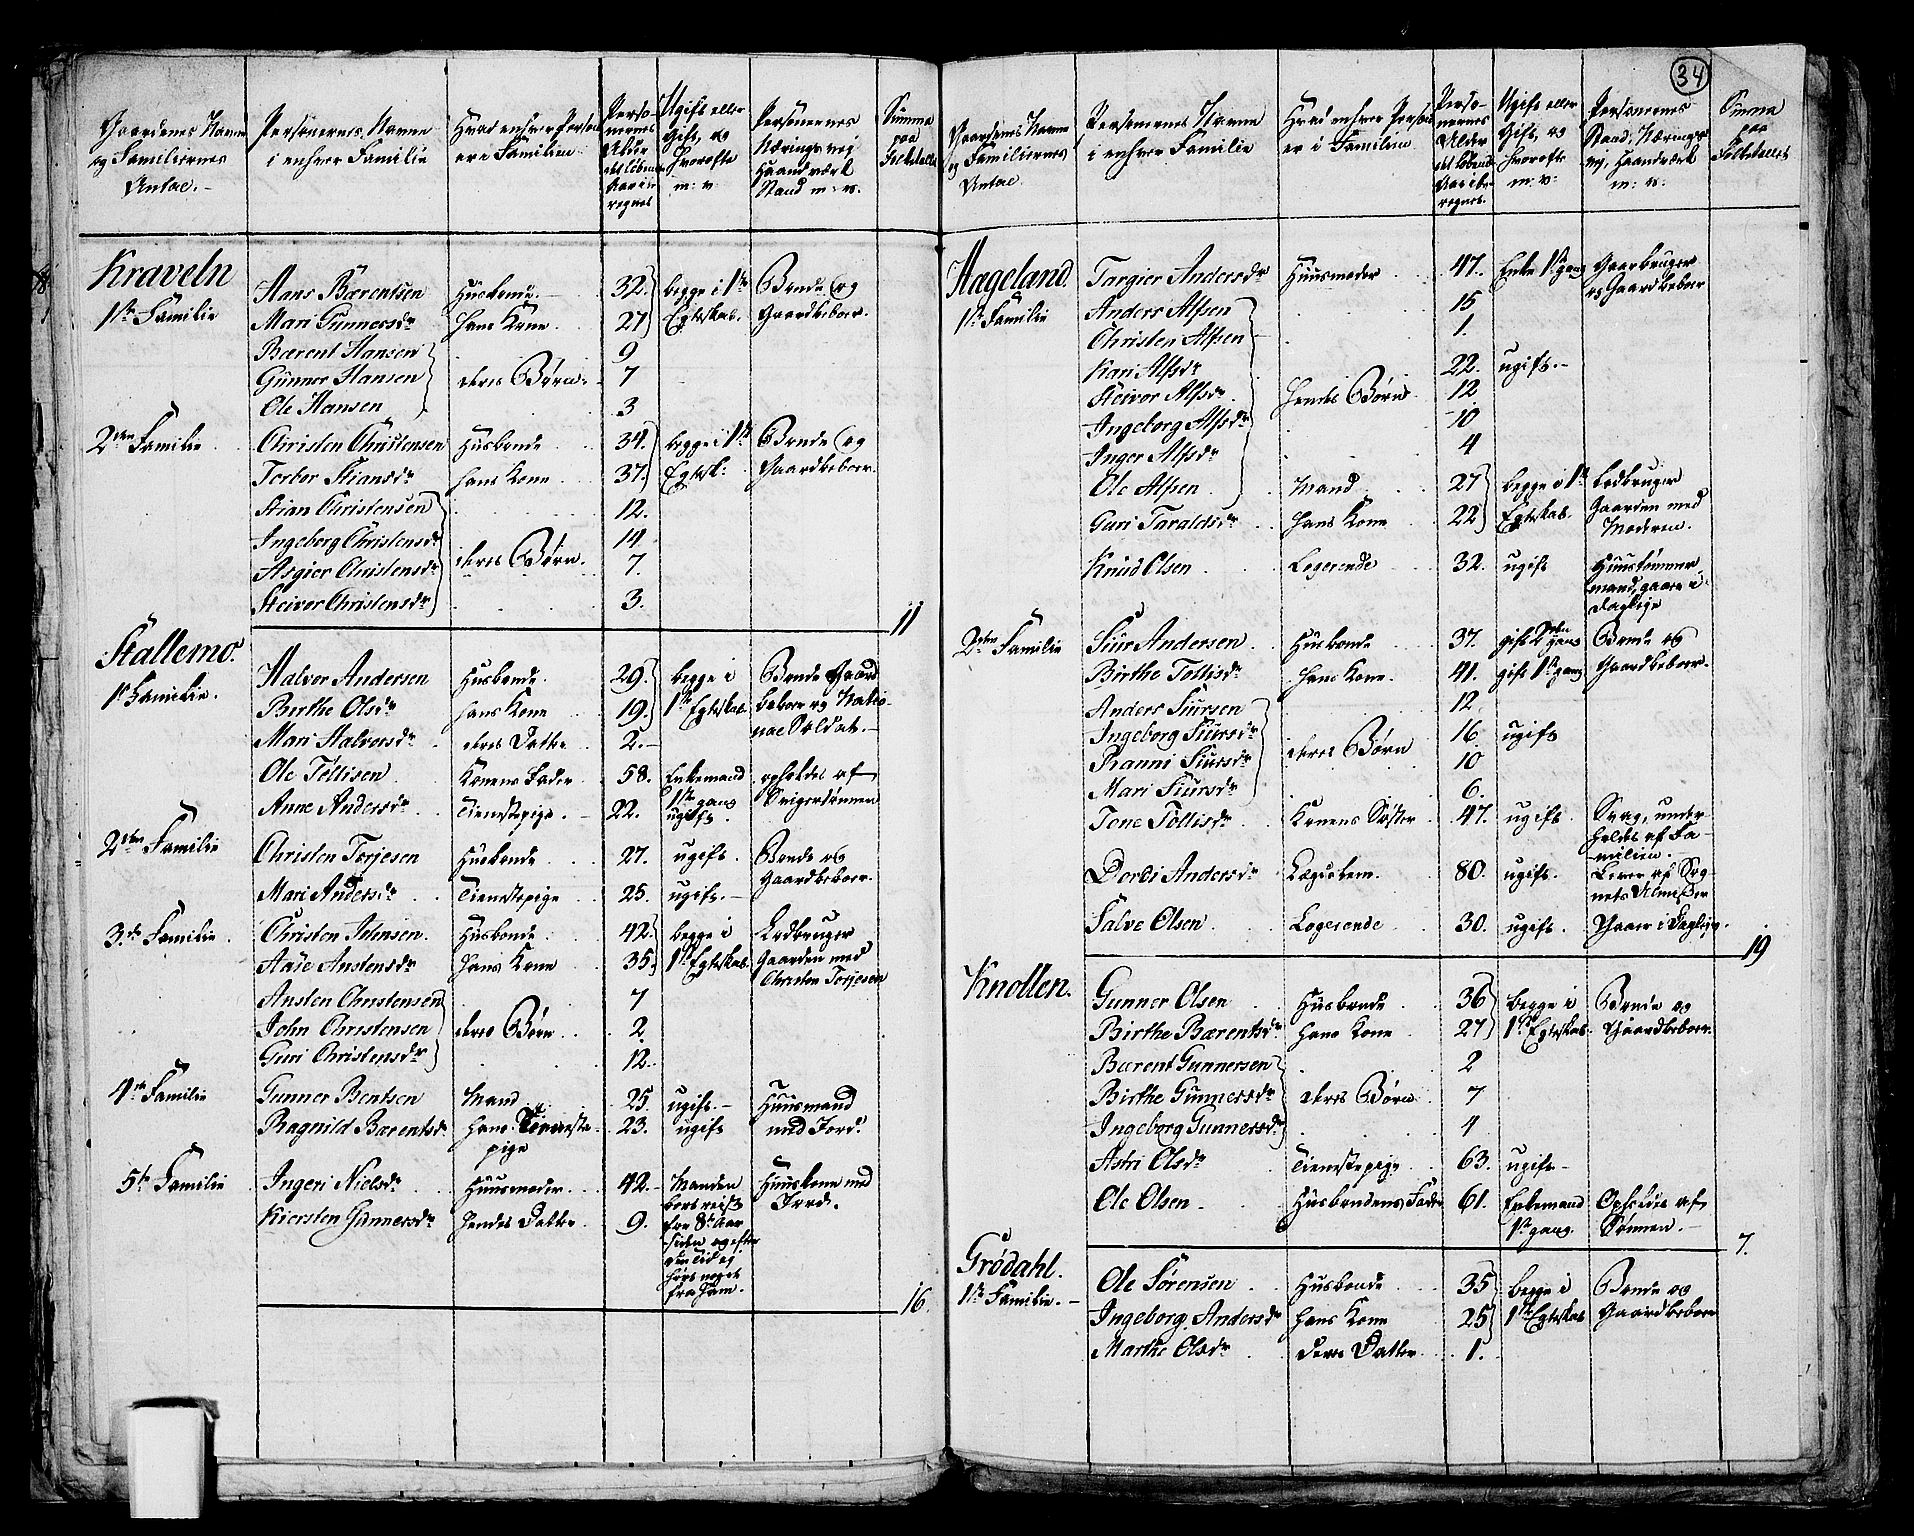 34
Gaardenes Navne og Familiernes Antal.
Personernes Navne i enhver Familie
Hvad enhver Person er i Familien
Personernes Alder det løbende Aar iberegnet
Ugift eller Gift, og hvorofte m: v:
Personernes Næringsvei Haandværk Stand m: v.
Summa paa Folketallet
Kraveln
1ste Familie
Hans Bærentsen Husbonde 32. begge i 1ste Bonde og
Mari Gunnersdr hans Kone 27 Egteskab. Gaardbeboer.
Bærent Hansen 9
Gunner Hansen deres Børn 7
Ole Hansen 3
2den Familie
Christen Christensen Husbonde 34. begge i 1ste Bonde og
Torbor Stiansdr hans Kone 37. Egtesk: Gaardbeboer.
Stian Christensen 12.
Ingeborg Christensdr 14
Asgier Christensdr deres Børn 7.
Steivor Christensdr 3. 11
Stallemo.
1ste Familie.
Halvor Andersen Husbonde 29. begge i Bonde Gaard
Birthe Olsdr hans Kone 19. 1ste Egteskab beboer og Natio-
Mari Halvorsdr deres Datter 2. nal Soldat.
Ole Tollisen Konens Fader 58. Enkemand 1ste gang opholdes af
Anne Andersdr Tienestepige 22. ugift. Svigersønnen
2den Familie
Christen Torjesen Husbonde 27. ugift. Bonde og
Gaardbeboer.
Mari Andersdr Tienestepige 25. ugift.
3de Familie
Christen Jensen Husbonde 42. begge i Ledbruger
Aase Anstensdr hans Kone 35. 1ste Egteskab Gaarden med
Christen Torjesen
Ansten Christensen 7
John Christensen deres Børn 2.
Guri Christensdr 12.
4de Familie
Gunner Bentsen Mand 25. ugift. Huusmand
Ragnild Barentsdr hans Tieneste- 23. ugift med Jord.
pige
5te Familie
Ingeri Nielsdr Huusmoder 42. Manden Huuskone med
Kiersten Gunnersdr hendes Datter 9. bortreist Jord.
for 8te Aar
siden og efter
den Tid ej
hørt noget
fra ham.
16.
Gaardenes Navne og Familiernes Antal
Personernes Navne i enhver Familie
Hvad enhver Person er i Familien
Personernes Alder det løbende Aar iberegnet.
Ugift eller Gift, og hvorofte m: v:
Personernes Stand, Næringsvej, Haandværk m: v.
Summa paa Folketallet
Hageland.
1ste Familie
Targier Andersdr Huusmoder 47. Enke 1ste gang Gaardbruger
og Gaardbeboer
Anders Alfsen 15
Christen Alfsen 1.
Kari Alfsdr 22. ugift.
Steivor Alfsdr hendes Børn 12
Ingeborg Alfsdr 10
Inger Alfsdr 4
Ole Alfsen Mand 27 begge i 1ste Ledbruger
Guri Taraldsdr hans Kone 22 Egteskab. Gaarden med
Moderen.
Knud Olsen Logerende 32. ugift Huustømmer
mand, gaaer i
Daglejé
2den Familie
Siur Andersen Husbonde 37. gift 2den gang Bonde og
Birthe Tollisdr hans Kone 41. gift 1ste gang Gaardbeboer.
Anders Siursen 12
Ingeborg Siursdr deres Børn 16 ugift
Ranni Siursdr 10
Mari Siursdr 6.
Tone Tollisdr Konens Søster 47. ugift. Svag, under-
holdes af Fa-
milien.
Dordi Andersdr Lægdslem 80. ugift. Lever af Sog-
nets Almisser
Salve Olsen Logerende 30. ugift. Gaaer i Dagleje.
19
Knollen.
Gunner Olsen Husbonde 36 begge i Bonde og
Birthe Bærentsdr hans Kone 27 1ste Egteskab. Gaardbeboer.
Bærent Gunnersen 2
Birthe Gunnersdr deres Børn 7
Ingeborg Gunnersdr 4
Astri Olsdr Tienestepige 63. ugift
Ole Olsen Husbondens Fader 61. Enkemand Opholdes af
1ste gang. Sønnen.
7.
Grødahl.
1ste Familie.
Ole Sørensen Husbonde 35 begge i Bonde og
Ingeborg Andersdr hans Kone 25 1ste Egteskab Gaardbeboer
Marthe Olsdr deres Datter 1.